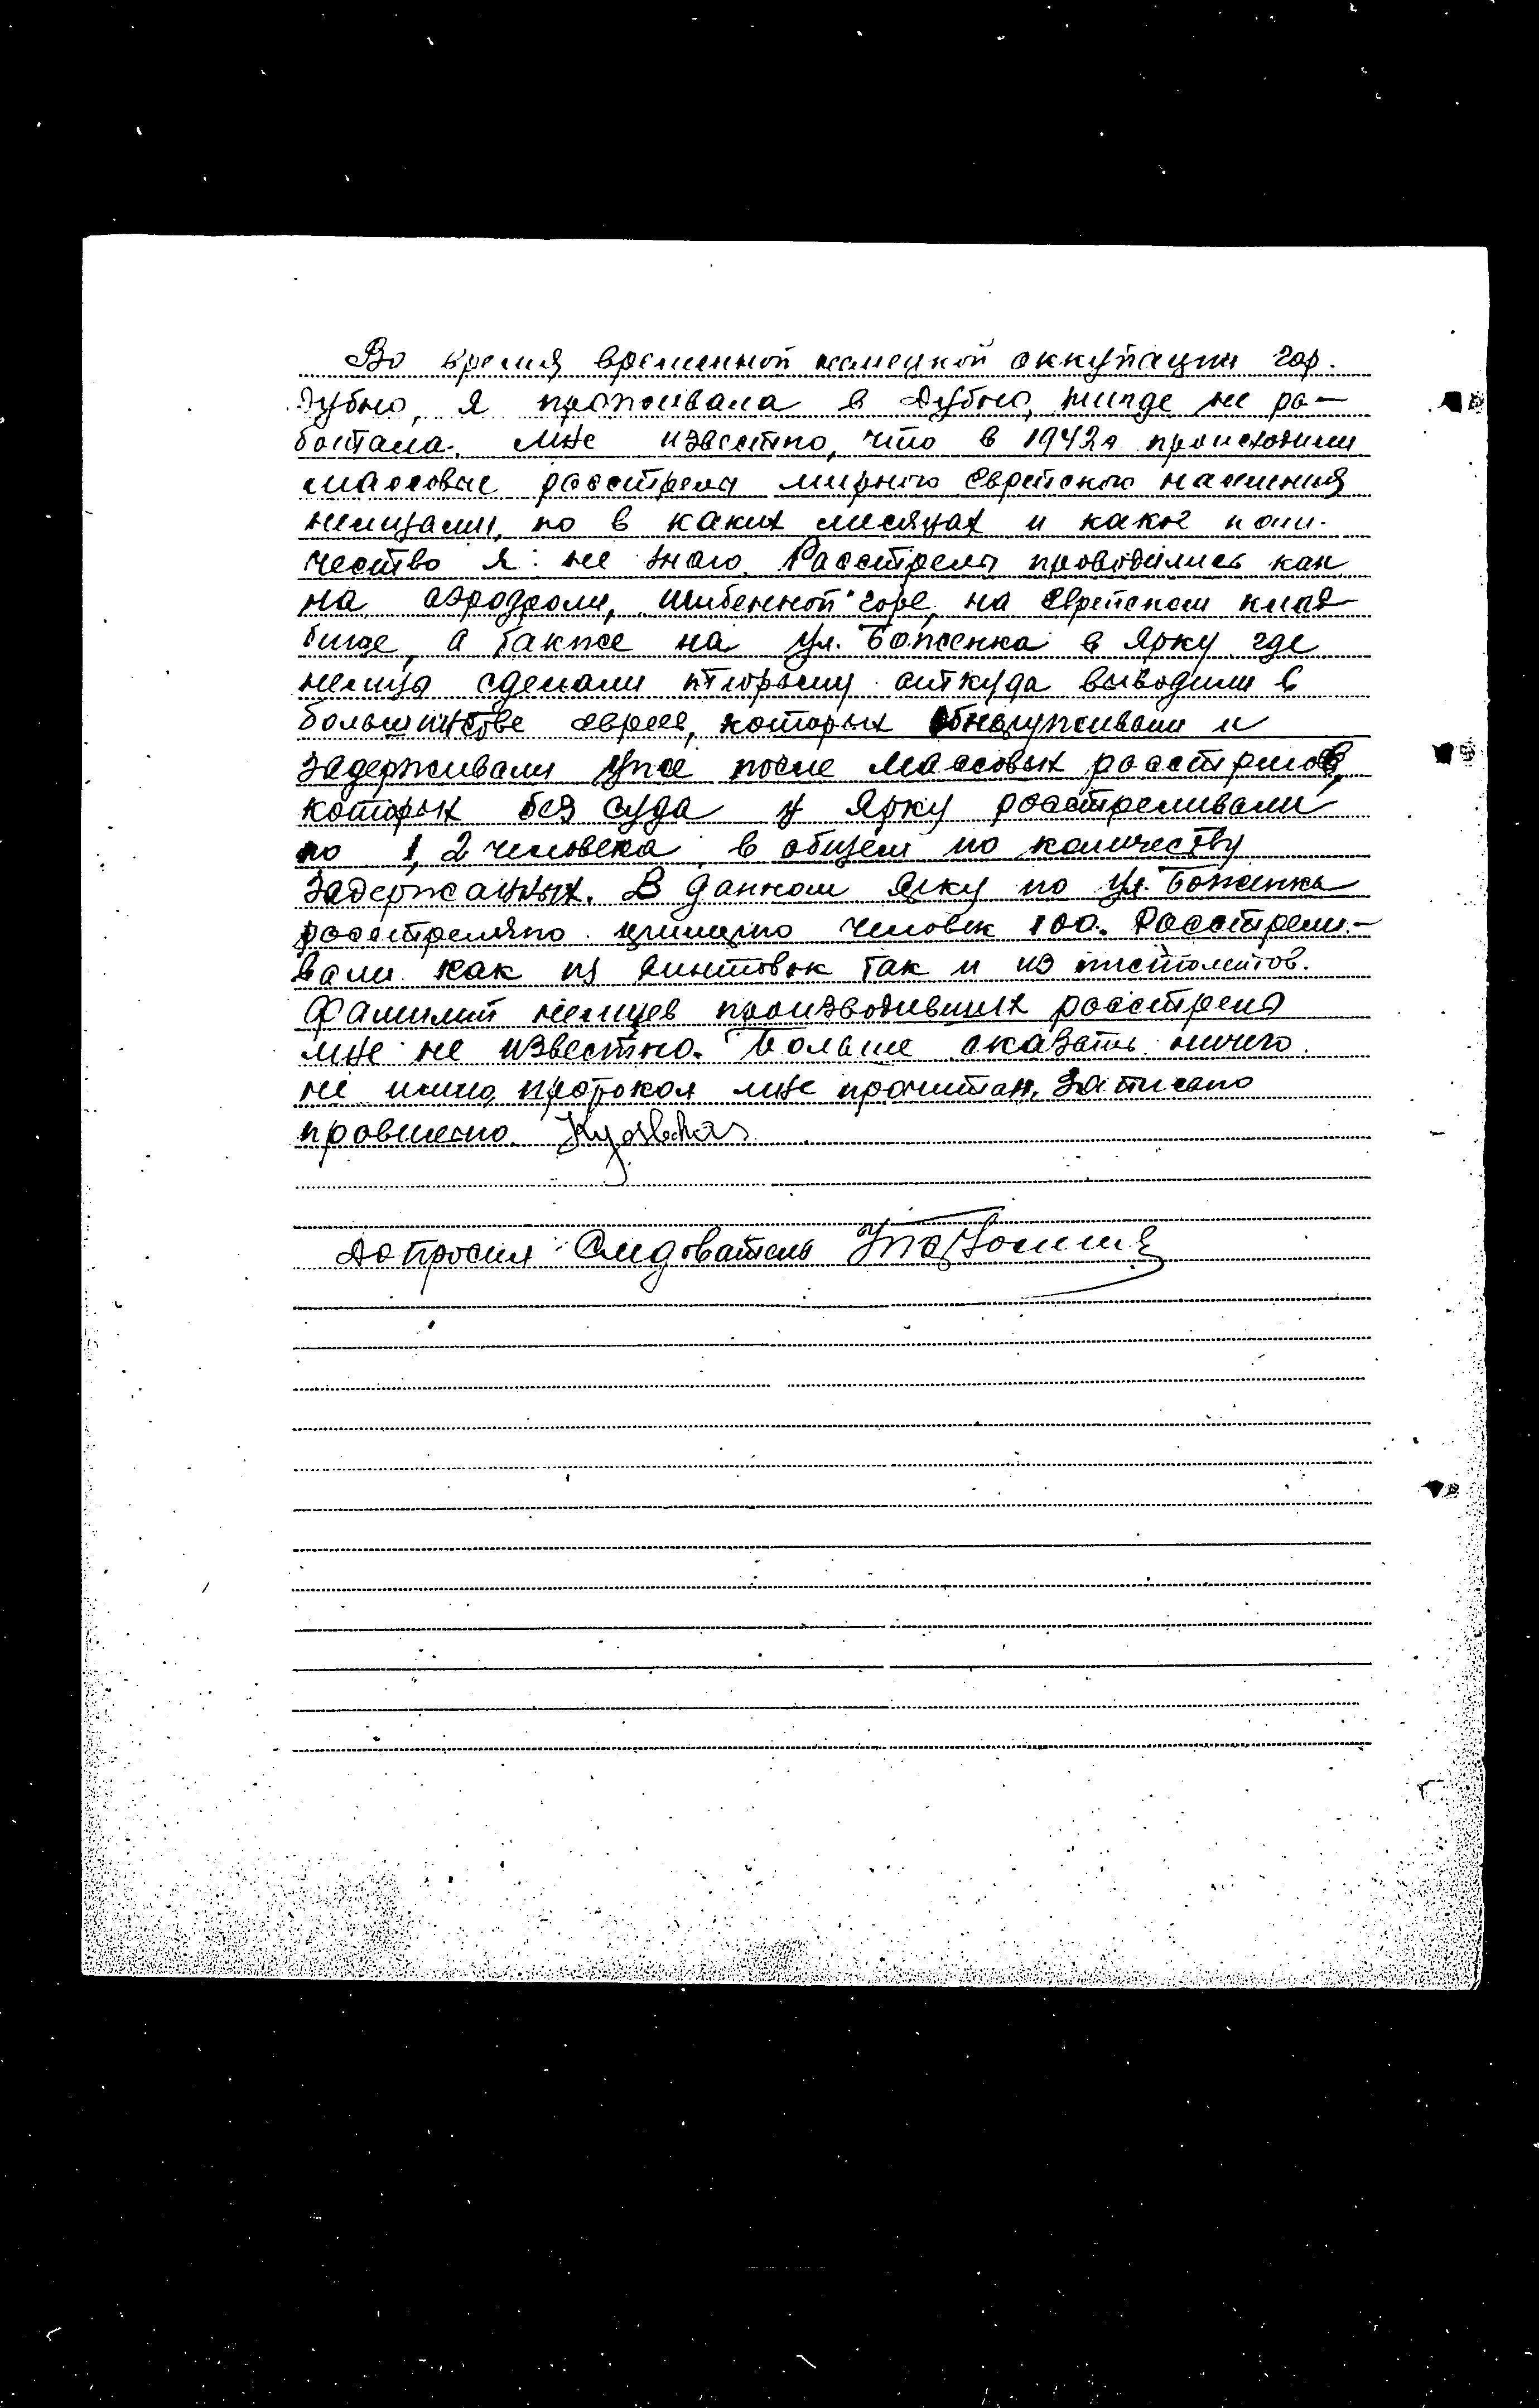 Во время временной немецкой оккупации гор.
Дубно, я проживала в Дубно, нигде не ра-
ботала. Мне известно, что в 1942г происходили
массовые расстрелы мирного Еврейского населения
немцами, но в каких месяцах и какое коли-
чество я не знаю. Расстрелы проводились как
на аэродроми, шибенной горе, на Еврейском клад
бище, а также на ул. Боженка в Ярку где
немцы сделали тюрьму откуда выводили в
большинстве евреев, которых обнаруживали и
задерживали уже после массовых расстрелов,
которых без суда у Ярку расстреливали
по 1, 2 человека, в общем по количеству
задержанных. В данном Ярку по ул. Боженка
расстреляно человек 100. Расстрели-
вали как из винтовок так и из пистолетов.
Фамилий немцев производивших расстрелы
мне не известно. Больше сказать ничего
не имею, протокол мне прочитан, записано
правильно.
Допросил Следователь